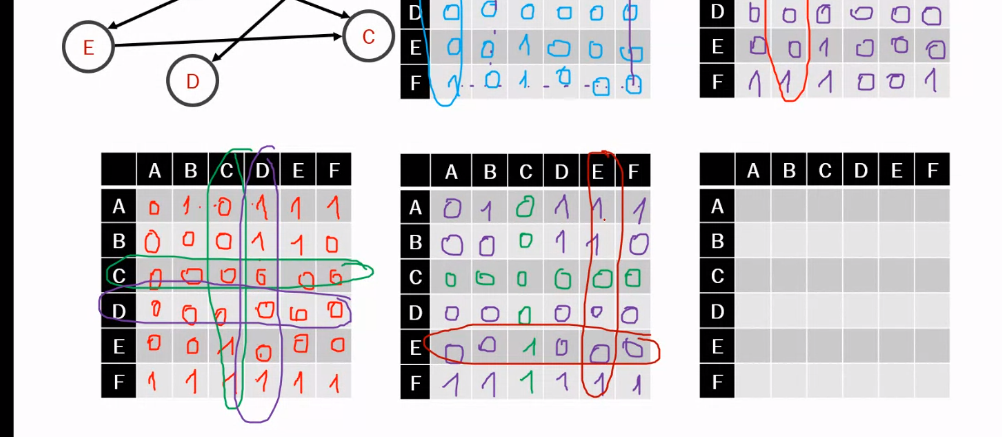 E
D
C
D 0 0 0 0 0 0
E 0 0 1 0 0 0
F 1 0 1 0 0 0
D 0 0 0 0 0 0
E 0 0 1 0 0 0
F 1 1 1 0 0 1
A B C D E F
A 0 1 0 1 1 1
B 0 0 0 1 1 0
C 0 0 0 0 0 0
D 0 0 0 0 0 0
E 0 0 1 0 0 0
F 1 1 1 1 1 1
A B C D E F
A 0 1 0 1 1 1
B 0 0 0 1 1 0
C 0 0 0 0 0 0
D 0 0 0 0 0 0
E 0 0 1 0 0 0
F 1 1 1 1 1 1
A B C D E F
A
B
C
D
E
F